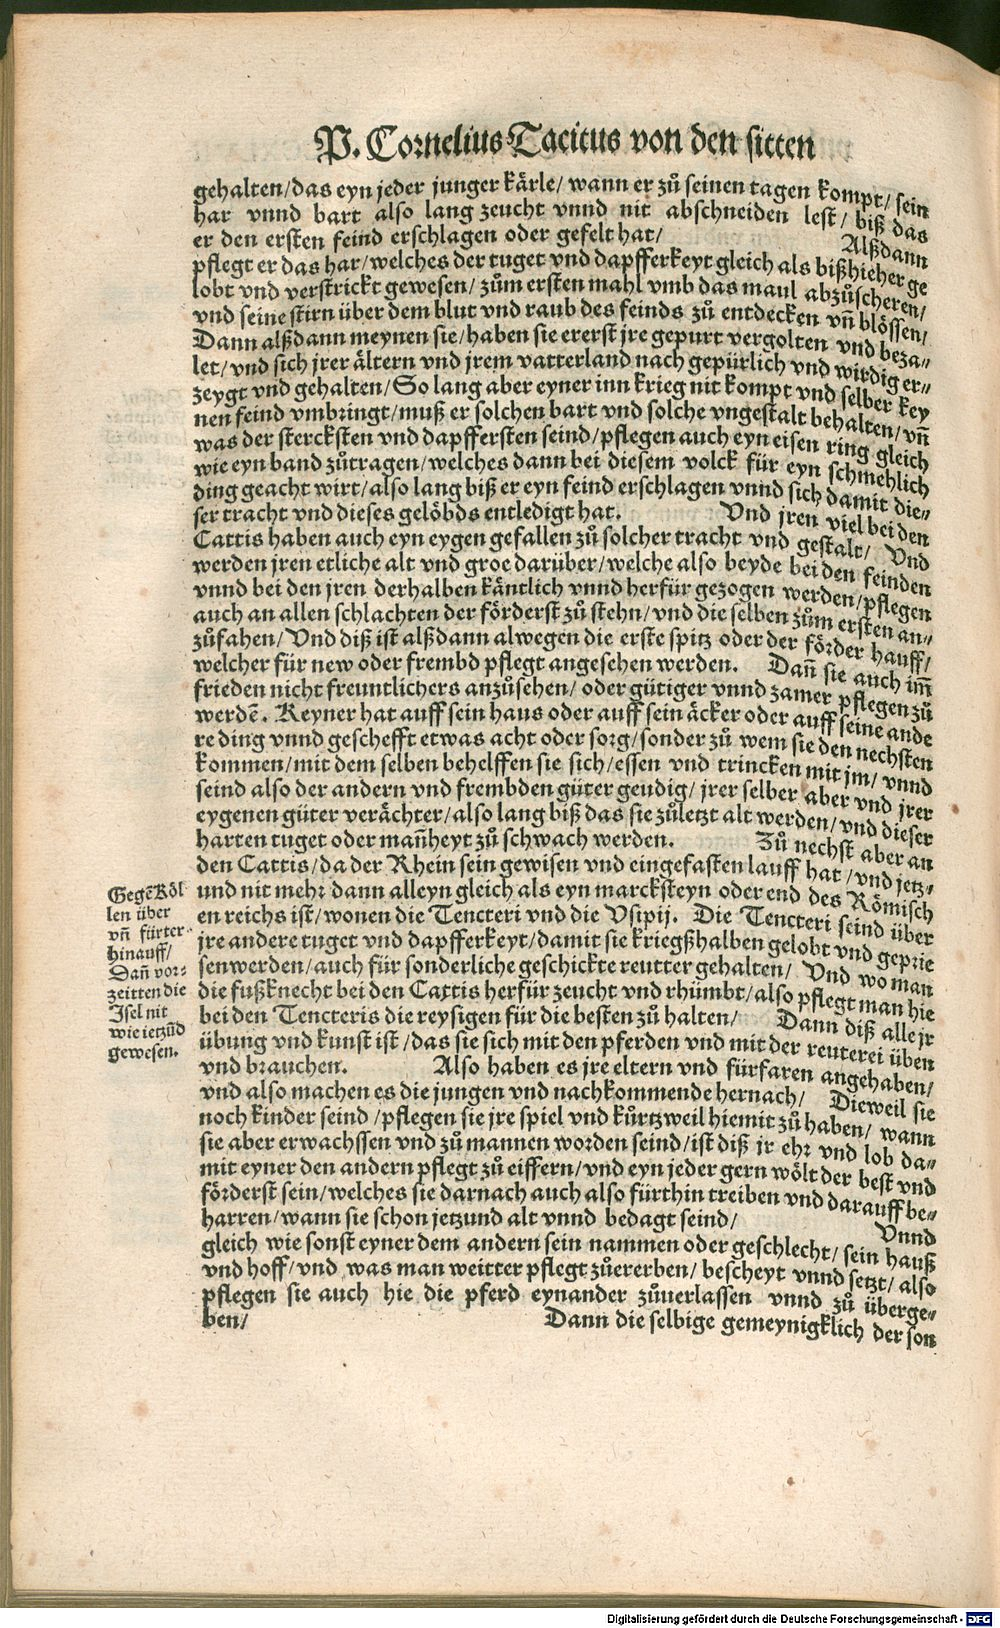 P. Cornelius Tacitus von den sitten
gehalten/das eyn jeder junger kärle/ wann er zů seinen tagen kompt/ sein
har vnnd bart also lang zeucht vnnd nit abschneiden lest/ biß das
er den ersten feind erschlagen oder gefelt hat/ Alßdann
pflegt er das har/welches der tuget vnd dapfferkeyt gleich als bißhieher ge
lobt vnd verstrickt gewesen/ zům ersten mahl vmb das maul abzůscheren/
vnd seine stirn über dem blut vnd raub des feinds zů entdecken vñ blössen/
Dann alßdann meynen sie/haben sie ererst jre gepurt vergolten vnd beza⸗
let/vnd sich jrer ältern vnd jrem vatterland nach gepürlich vnd wirdig er⸗
zeygt vnd gehalten/ So lang aber eyner inn krieg nit kompt vnd selber key
nen feind vmbringt/muß er solchen bart vnd solche vngestalt behalten/ vñ
was der stercksten vnd dapffersten seind/pflegen auch eyn eisen ring gleich
wie eyn band zůtragen/welches dann bei diesem volck für eyn schmehlich
ding geacht wirt/also lang biß er eyn feind erschlagen vnnd sich damit die⸗
ser tracht vnd dieses gelöbds entledigt hat. Vnd jren viel bei den
Cattis haben auch eyn eygen gefallen zů solcher tracht vnd gestalt/ Vnd
werden jren etliche alt vnd groe darüber/welche also beyde bei den feinden
vnnd bei den jren derhalben käntlich vnnd herfür gezogen werden/pflegen
auch an allen schlachten der förderst zů stehn/vnd die selben zům ersten an⸗
zůfahen/Vnd diß ist alßdann alwegen die erste spitz oder der förder hauff/
welcher für new oder frembd pflegt angesehen werden. Dañ sie auch im̃
frieden nicht freuntlichers anzůsehen/ oder gütiger vnnd zamer pflegen zů
werdē. Keyner hat auff sein haus oder auff sein äcker oder auff seine ande
re ding vnnd geschefft etwas acht oder sorg/sonder zů wem sie den nechsten
kommen/mit dem selben behelffen sie sich/essen vnd trincken mit jm/ vnnd
seind also der andern vnd frembden güter geudig/ jrer selber aber vnd jrer
eygenen güter verächter/also lang biß das sie zůletzt alt werden/vnd dieser
harten tuget oder mañheyt zů schwach werden. Zů nechst aber an
den Cattis/da der Rhein sein gewisen vnd eingefasten lauff hat/vnd jetz⸗
und nit mehr dann alleyn gleich als eyn marcksteyn oder end des Römisch
en reichs ist/wonen die Tencteri vnd die Vsipij. Die Tencteri seind über
jre andere tuget vnd dapfferkeyt/damit sie kriegßhalben gelobt vnd geprie
sen werden/auch für sonderliche geschickte reutter gehalten/ Vnd wo man
die fußknecht bei den Cattis herfür zeucht vnd rhümbt/also pflegt man hie
bei den Tencteris die reysigen für die besten zů halten/ Dann diß alle jr
übung vnd kunst ist/das sie sich mit den pferden vnd mit der reuterei üben
vnd brauchen. Also haben es jre eltern vnd fürfaren angehaben/
vnd also machen es die jungen vnd nachkommende hernach/ Dieweil sie
noch kinder seind/pflegen sie jre spiel vnd kůrtzweil hiemit zů haben/ wann
sie aber erwachssen vnd zů mannen worden seind/ist diß jr ehr vnd lob da⸗
mit eyner den andern pflegt zů eiffern/vnd eyn jeder gern wölt der best vnd
förderst sein/welches sie darnach auch also fürthin treiben vnd darauff be⸗
harren/wann sie schon jetzund alt vnnd bedagt seind/ Vnnd
gleich wie sonst eyner dem andern sein nammen oder geschlecht/ sein hauß
vnd hoff/vnd was man weitter pflegt zůererben/ bescheyt vnnd setzt/ also
pflegen sie auch hie die pferd eynander zůuerlassen vnnd zů überge⸗
ben/ Dann die selbige gemeynigklich der son
Gegē Köl
len über
vñ fürter
hinauff/
Dañ vor⸗
zeitten die
Isel nit
wie ietzūd
gewesen.
Digitalisierung gefördert durch die Deutsche Forschungsgemeinschaft - DFG